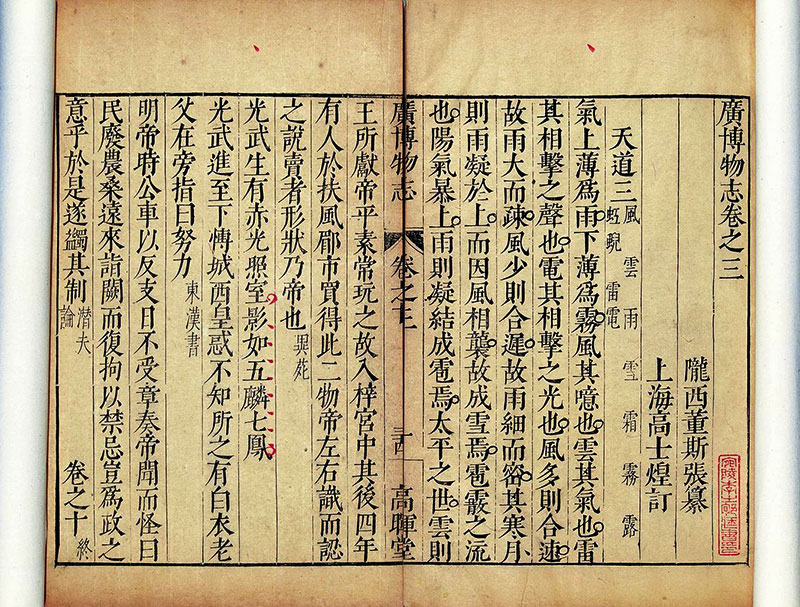 廣博物志卷之三
隴西董斯張纂
上海高士煌訂
天道三 風 雲 雨 雪 霜 霧 露
虹蜺 雷電
氣上薄爲雨下薄爲霧風其噫也雲其氣也雷
其相擊之聲也電其相擊之光也風多則合速
故雨大而疎風少則合遲故雨細而密其寒月
則雨凝於上而因風相襲故成雪焉雹霰之流
也陽氣暴上雨則凝結成雹焉太平之世雲則
廣博物志 卷之 高暉堂
王所獻帝平素常玩之故入梓宮中其後四年
有人於扶風郿市買得此二物帝左右識而認
之說賣者形狀乃帝也 異苑
光武生有赤光照室影如五麟七鳳
光武進至下博城西皇惑不知所之有白衣老
父在旁指曰努力 東漢書
明帝時公車以反支日不受章奏帝聞而怪曰
民廢農桑遠來詣闕而復拘以禁忌豈爲政之
意乎於是遂蠲其制 潛夫論 卷之十 終